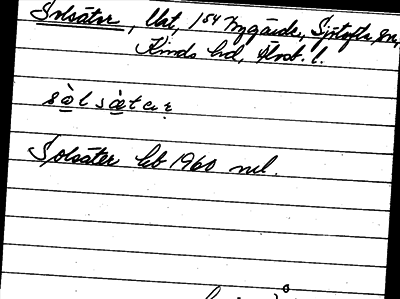 Solsäter, lht, 1 54 Nygärde, Sjötofta sn,
Kinds hd, Älvsb. l.
sòlsæ̀tar
Solsäter lht 1960 ncl.